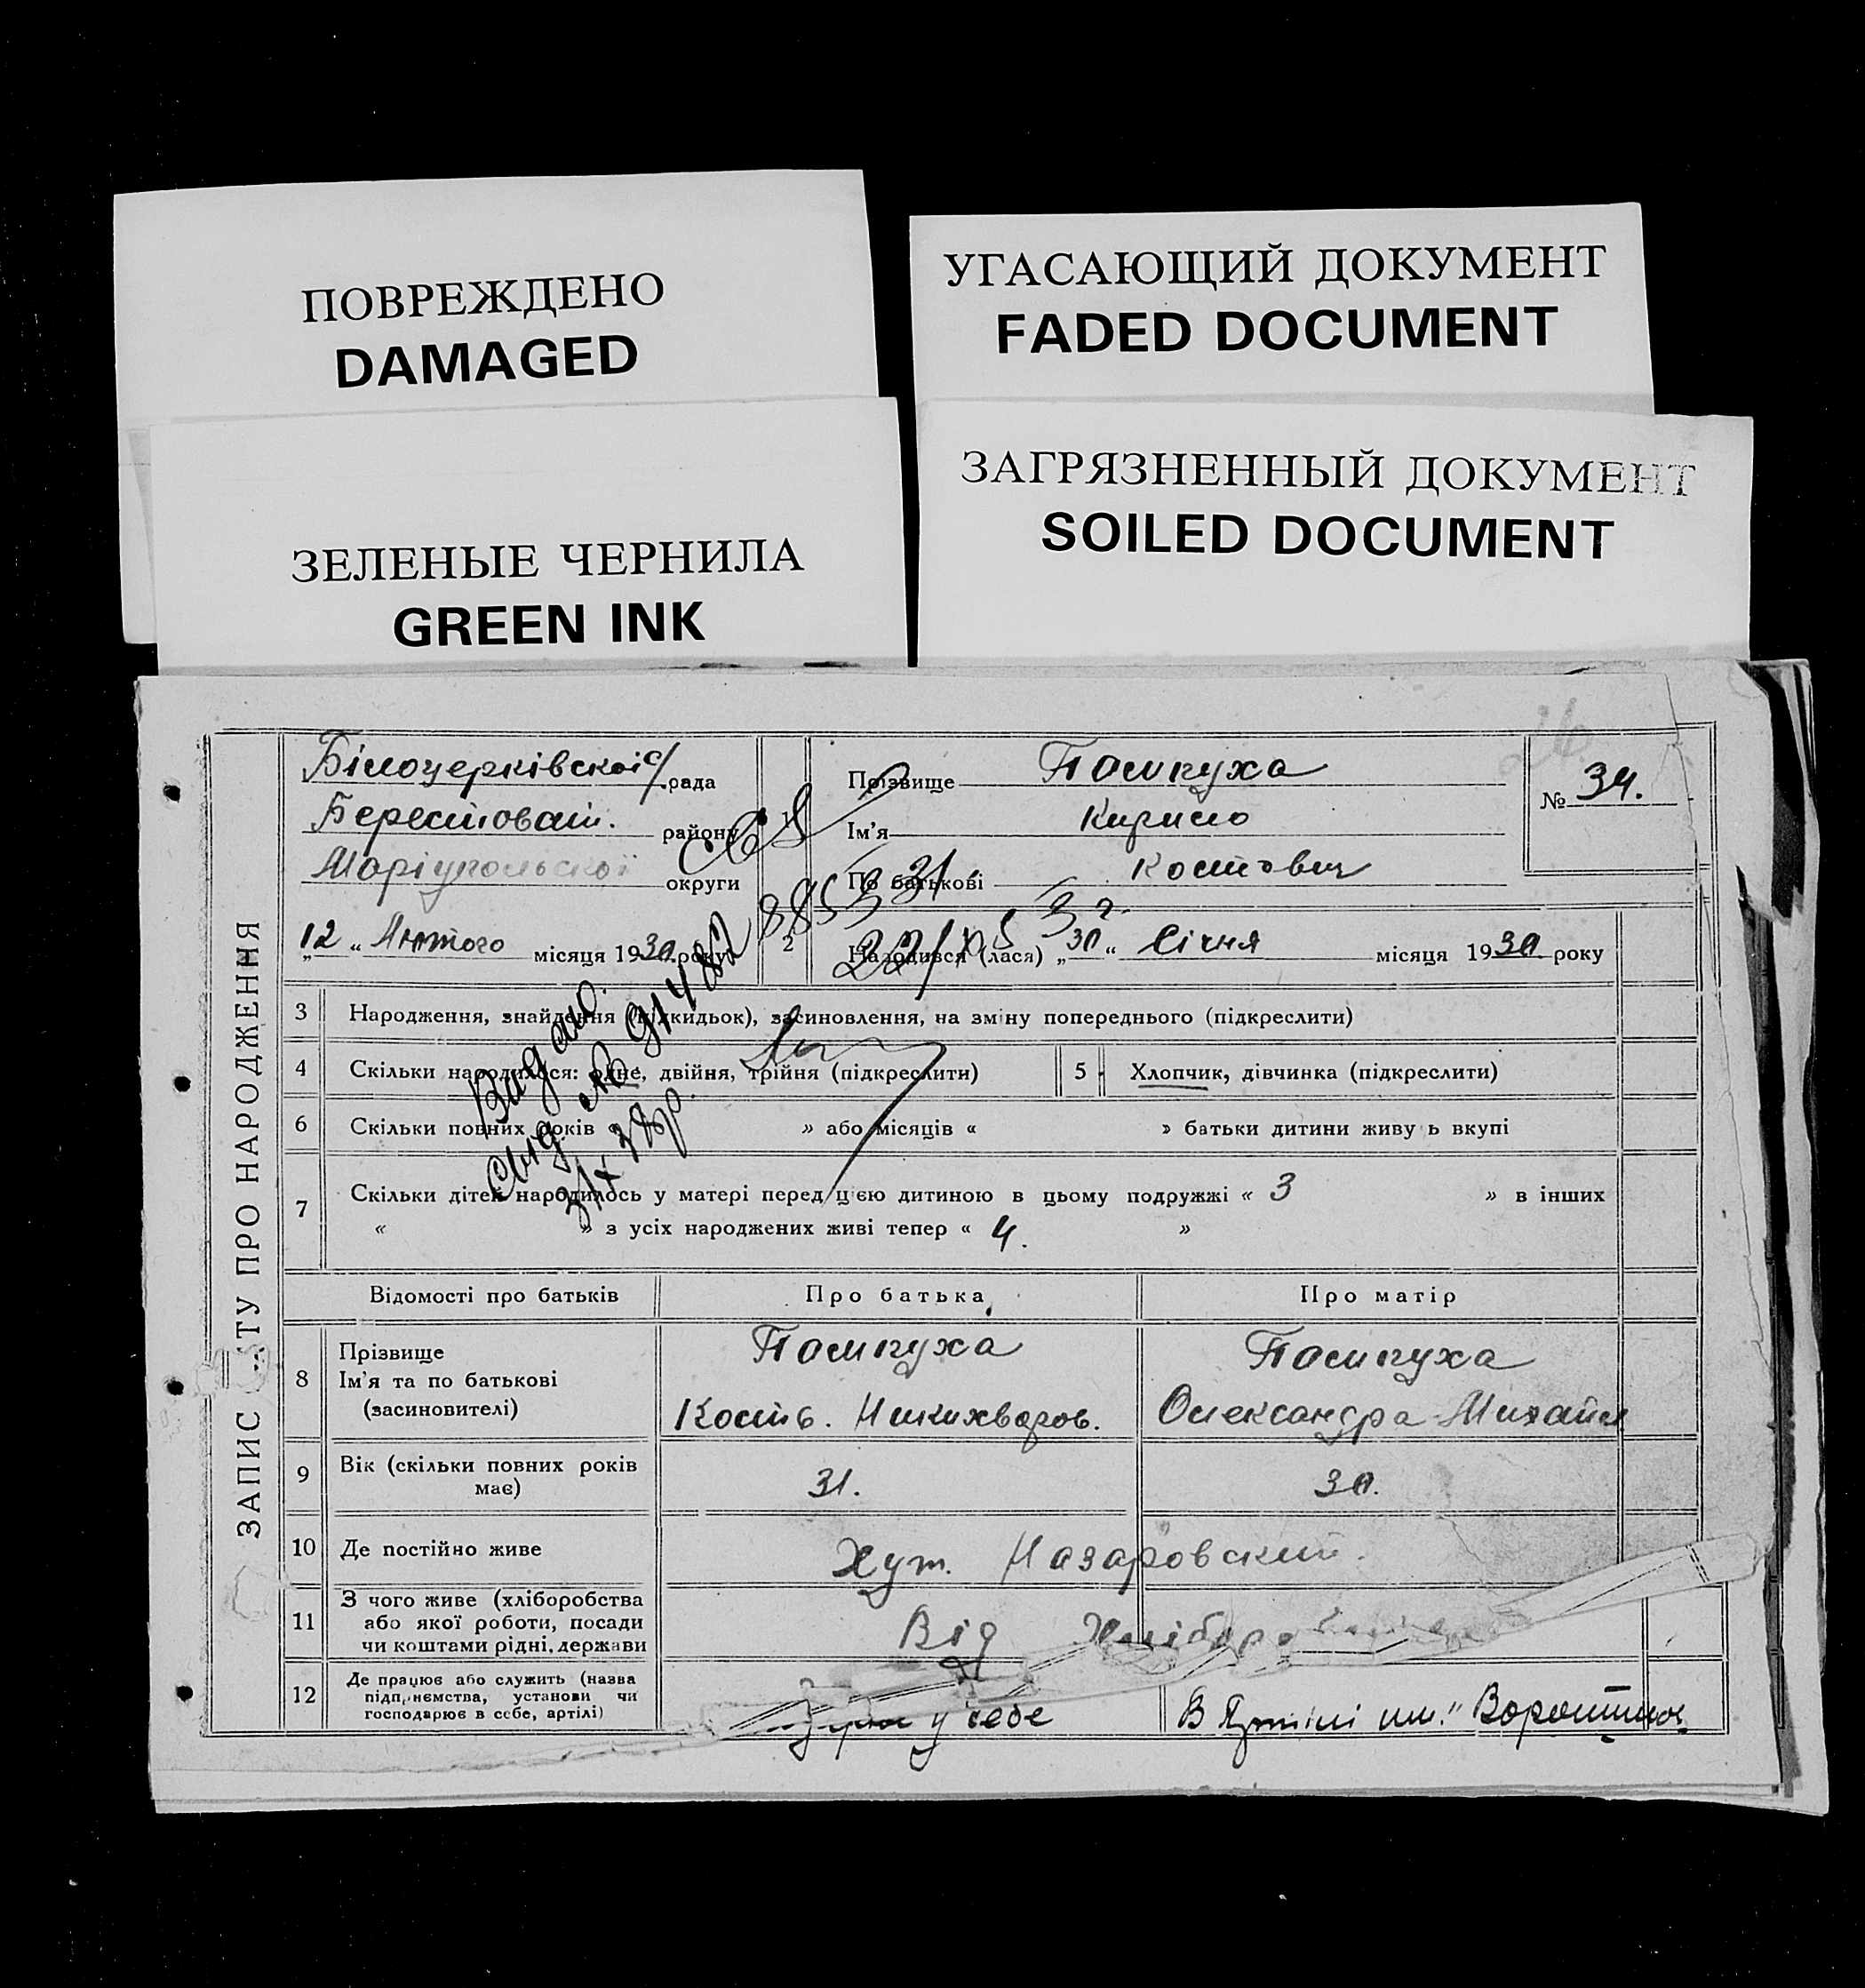 ПОВРЕЖДЕНО
DAMAGED
УГАСАЮЩИЙ ДОКУМЕНТ
FADED DOCUMENT
ЗЕЛЕНЫЕ ЧЕРНИЛА
GREEN INK
ЗАГРЯЗНЕННЫЙ ДОКУМЕНТ
SOILED DOCUMENT
ЗАПИС АКТУ ПРО НАРОДЖЕННЯ
Білоцерківскої с/рада
Берестоват. району
Маріупольської округи
„12“ Лютого місяця 1930 року
1
Прізвище Помпуха
Ім'я Кирило
По батькові Костович
№ 34.
2
Народився (лася) „30“ Січня місяця 1930 року
3 Народження, знайдення (підкидьок), засиновлення, на зміну попереднього (підкреслити)
4 Скільки народилося: одне, двійня, трійня (підкреслити)
5 Хлопчик, дівчинка (підкреслити)
6 Скільки повних років « » або місяців « » батьки дитини живу ь вкупі
7 Скільки дітей народилось у матері перед цією дитиною в цьому подружжі « 3 » в інших
« » з усіх народжених живі тепер « 4. »
Видано.
Свид № 91482
Відомості про батьків
Про батька
Про матір
8 Прізвище
Ім'я та по батькові
(засиновителі)
Помпуха
Коств. Никихворов.
Помпуха
Олександра Михайл
9 Вік (скільки повних років
має)
31.
30.
10 Де постійно живе
Хут. Назаровский.
11 З чого живе (хліборобства
або якої роботи, посади
чи коштами рідні, держави
Від Хлібороб
12 Де працює або служить (назва
підприємства, установи чи
господарює в себе, артілі)
у себе
В Артілі им." Ворошилов